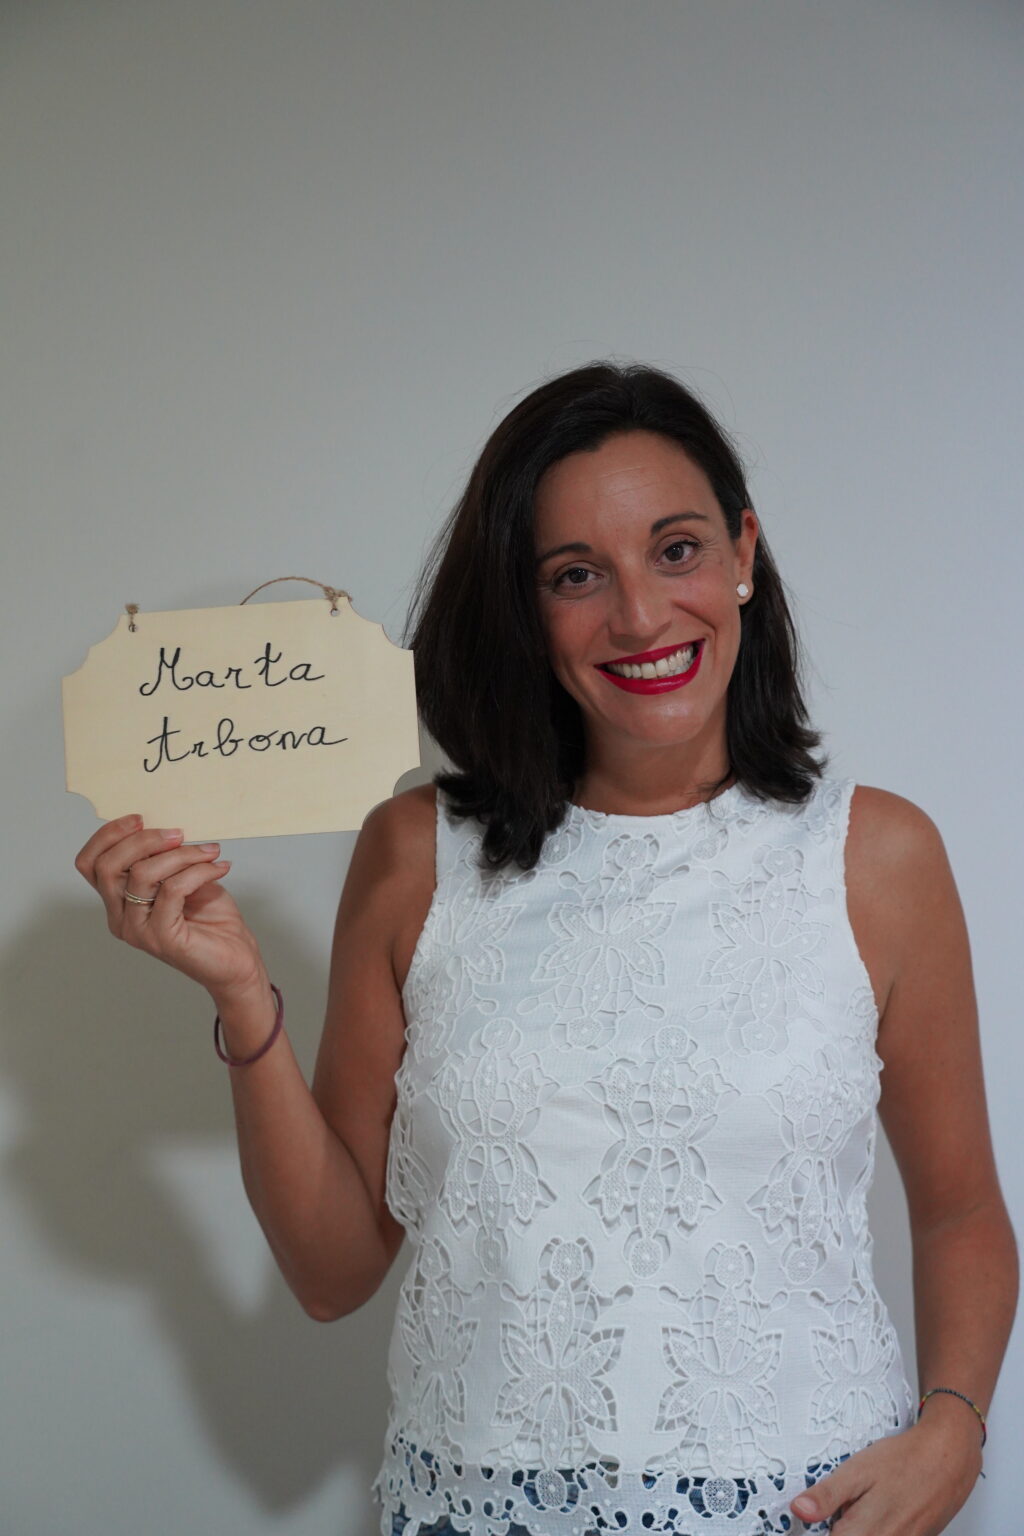 Marta
Arbona